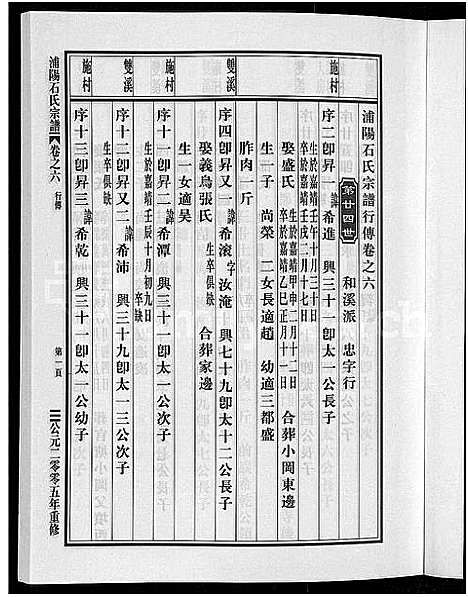 浦陽石氏宗譜行傳卷之六
第廿四世　和溪派　忠字行
施村
序二卽昇一諱希進　興三十一卽太一公長子
生於嘉靖壬午十月三十日
卒於嘉靖壬戌二月十七日
娶盛氏
生於嘉靖甲申二月十二日
卒於嘉靖乙巳正月十一日
合葬小岡東邊
生一子　尚榮　二女長適趙　幼適三都盛
胙肉一斤
雙溪
序四卽昇又一諱希滾字汝淹　興七十九卽太十二公長子
娶義烏張氏　生卒俱缺　合葬家邊
生一女適吴
施村
序十一卽昇二諱希潭　興三十一卽太一公次子
生於嘉靖壬辰十月初九日　卒缺
雙溪
序十二卽昇又二諱希沛　興三十九卽太一三公次子
生卒俱缺
施村
序十三卽昇三諱希乾　興三十一卽太一公幼子
浦陽石氏宗譜　卷之六　行傳
第一頁
公元二零零五年重修